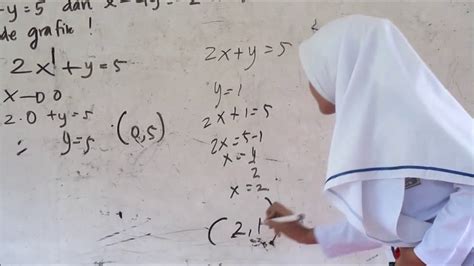 +y = 5 dan x - y = 2
de grafik !
2x + y = 5
x → 0
2.0 + y = 5
∴ y = 5 (0,5)
2x + y = 5
y = 1
2x + 1 = 5
2x = 5 - 1
x = 4
2
x = 2
(2,1)